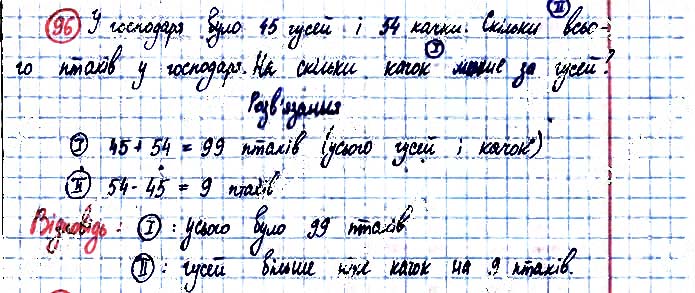 96 У господаря було 45 гусей і 54 качки. Скільки II всьо-
го птахів у господаря. На скільки I качок менше за гусей?
Розв'язання
I 45 + 54 = 99 птахів (усього гусей і качок)
II 54 - 45 = 9 птахів
Відповідь: I: усього було 99 птахів
II: гусей більше ніж качок на 9 птахів.